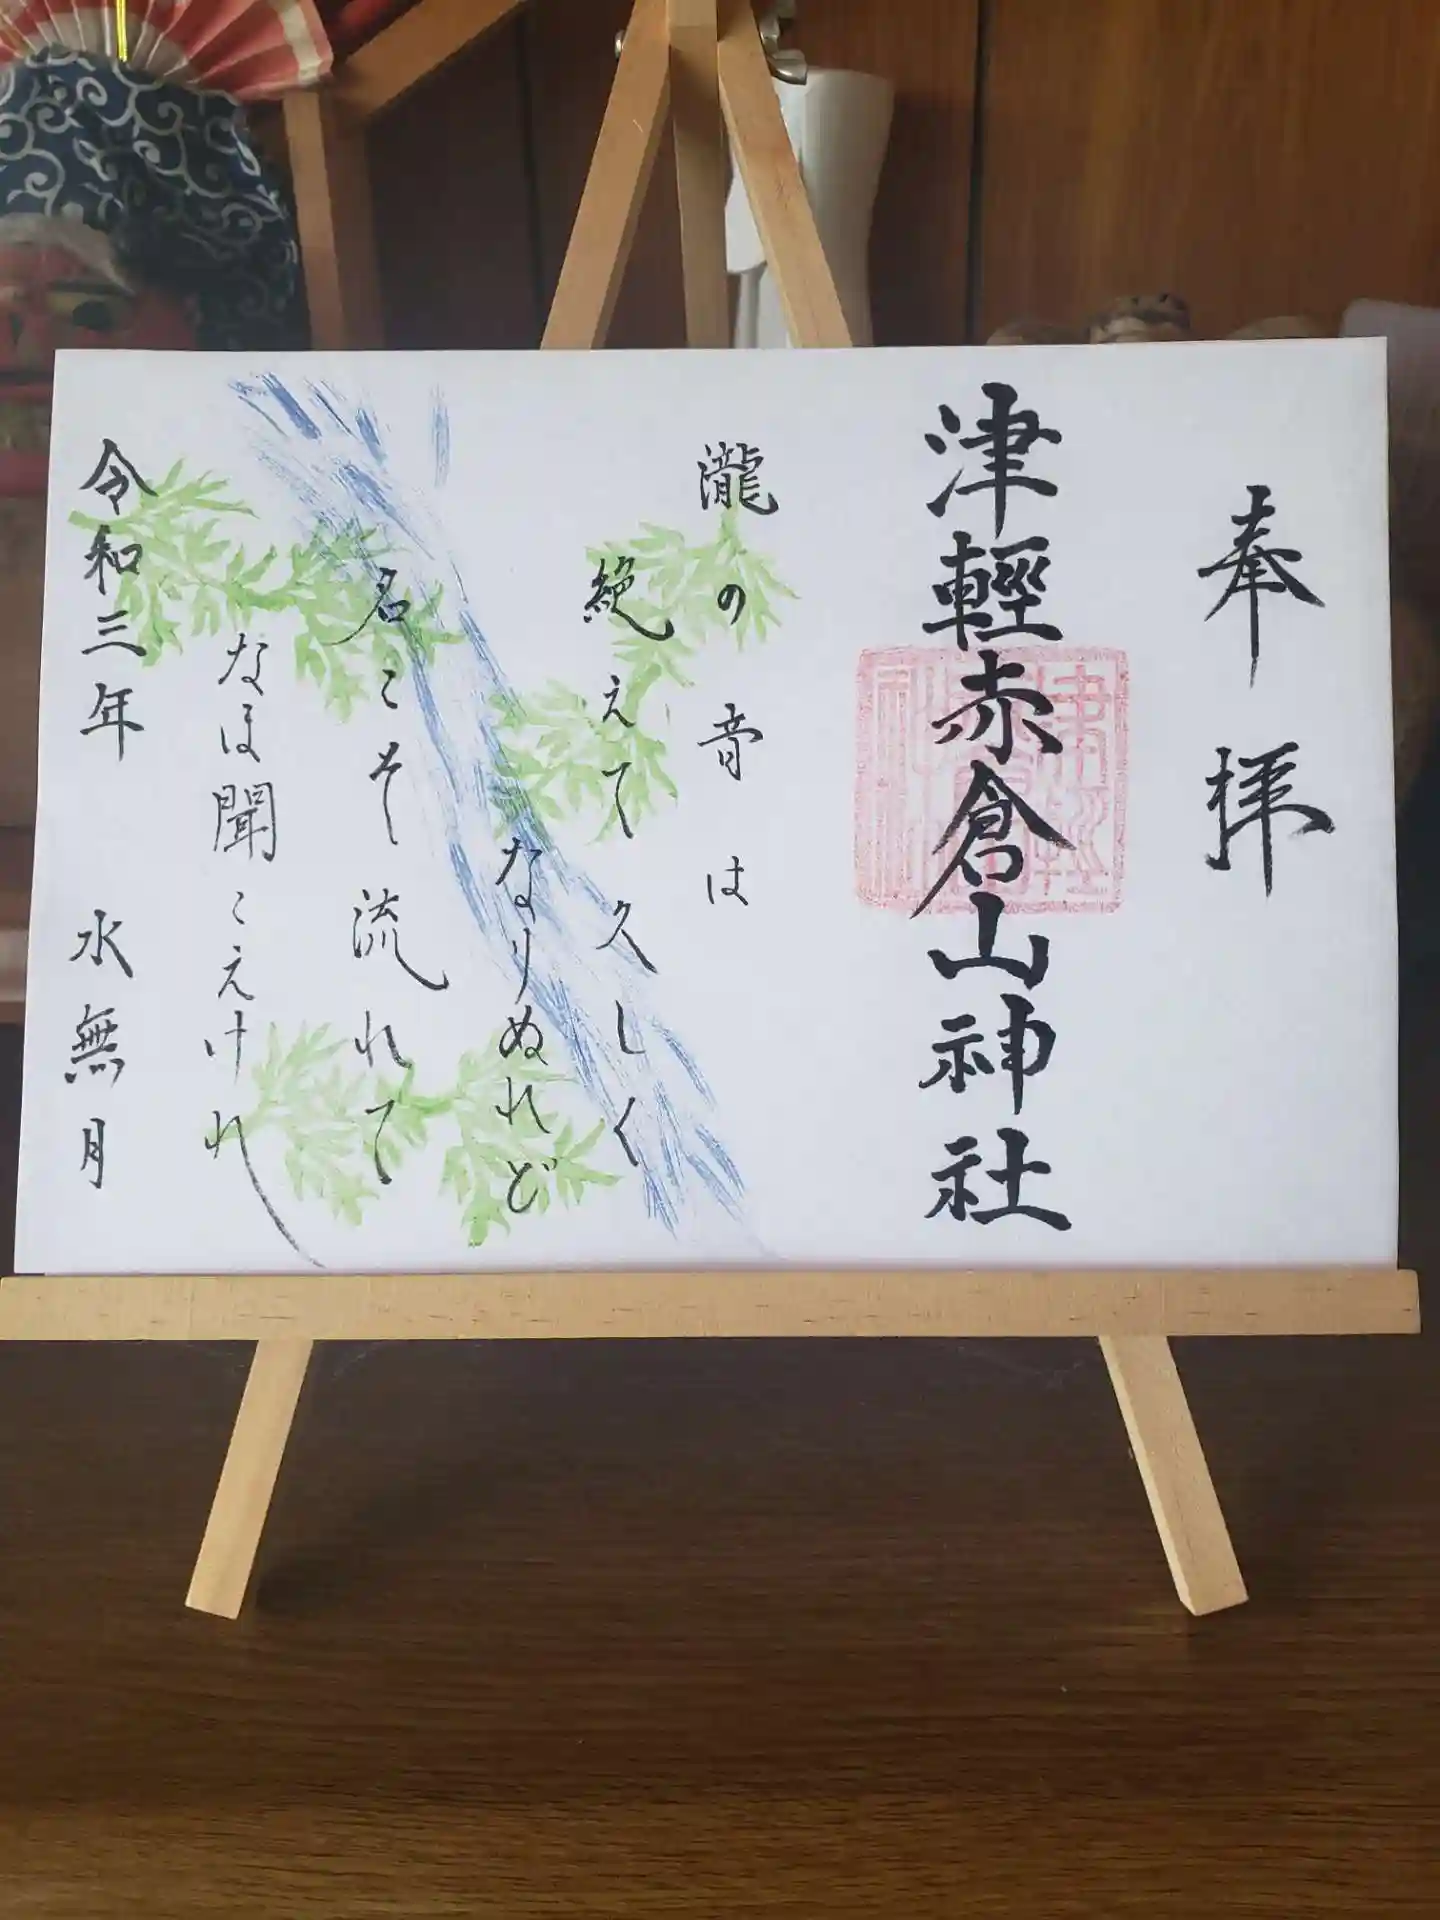 奉拝
津輕赤倉山神社
瀧の音は
絶えて久しく
なりぬれど
名こそ流れて
なほ聞こえけれ
令和三年 水無月